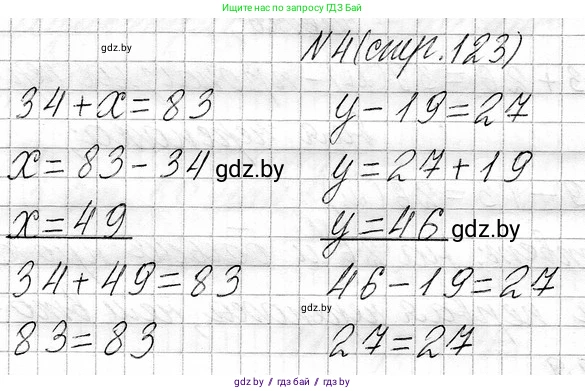 Ищите нас по запросу ГДЗ Бай
gdz.by
N 4 (стр. 123)
34 + x = 83
x = 83 - 34 gdz.by
x = 49
34 + 49 = 83
83 = 83
y - 19 = 27
y = 27 + 19
y = 46 gdz.by
46 - 19 = 27
gdz.by
27 = 27
gdz.by / гдз бай / gdz.by